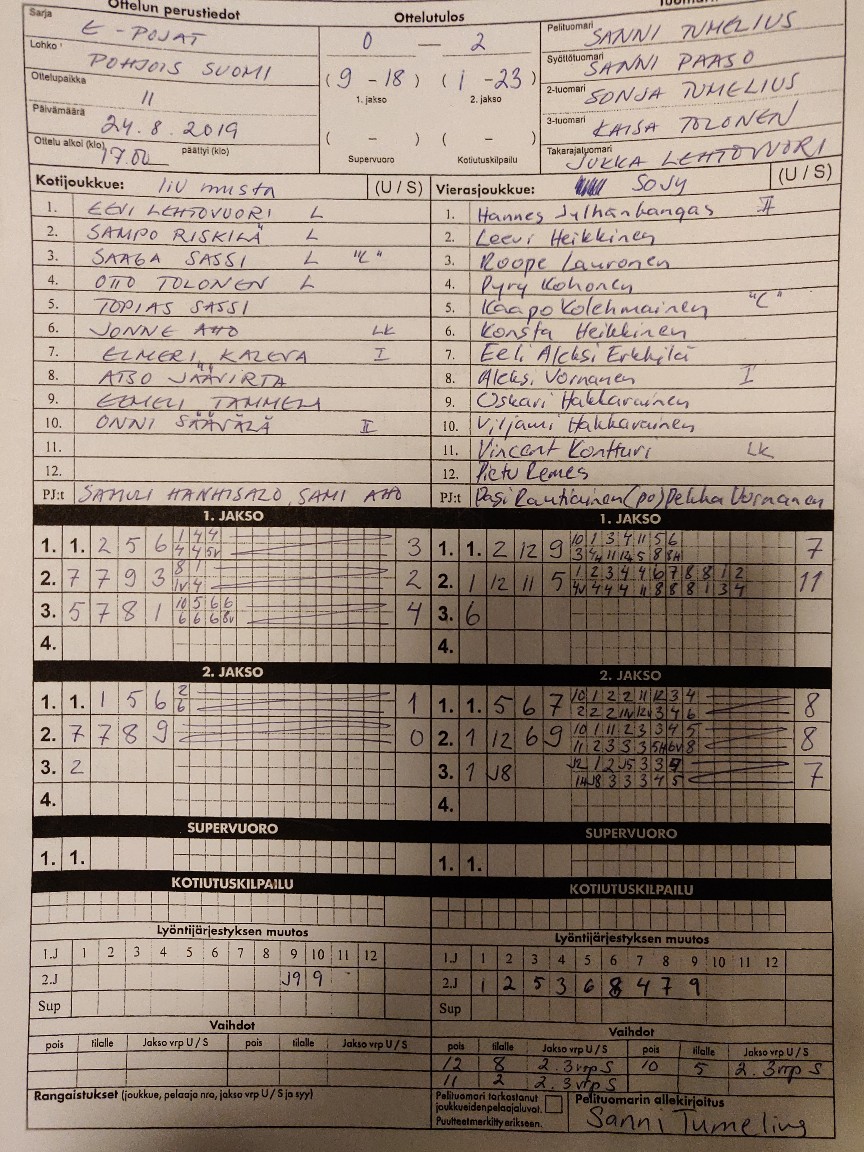 Ottelun perustiedot
Ottelutulos
Sarja E-POJAT
Lohko POHJOIS SUOMI
Ottelupaikka II
Päivämäärä 24.8.2019
Ottelu alkoi (klo) 17.00 päättyi (klo)
0 — 2
(9 - 18) (1 - 23)
1. jakso 2. jakso
( - ) ( - )
Supervuoro Kotiutuskilpailu
Pelituomari SANNI TUMELIUS
Syöttötuomari SANNI PAASO
2-tuomari SONJA TUMELIUS
3-tuomari KAISA TOLONEN
Takarajatuomari JUKKA LEHTOVUORI
Kotijoukkue: IiU musta (U / S)
1. EEVI LEHTOVUORI L
2. SAMPO RISKILÄ L
3. SAAGA SASSI L "C"
4. OTTO TOLONEN L
5. TOPIAS SASSI
6. JONNE AHO LK
7. ELMERI KALEVA I
8. ATSO JÄÄVIRTA
9. EEMELI TAMMELA
10. ONNI SÄÄVÄLÄ II
11.
12.
PJ:t SAMULI HANHISALO, SAMI AHO
Vierasjoukkue: SoJy (U / S)
1. Hannes Julhänkangas II
2. Leevi Heikkinen
3. Roope Lauronen
4. Pyry Kohonen
5. Kaapo Kolehmainen "C"
6. Konsta Heikkinen
7. Eeli Aleksi Erkkilä
8. Aleksi Vornanen I
9. Oskari Hakkarainen
10. Viljami Hakkarainen
11. Vincent Kontturi LK
12. Pietu Remes
PJ:t Pasi Rautiainen (po) Pekka Vornanen
1. JAKSO
1. 1. 2 5 6 1 4 4 3
4 4 5v
2. 7 7 9 3 8 1 2
1v 4
3. 5 7 8 1 10 5 6 6 4
6 6 6 8v
4.
1. JAKSO
1. 1. 2 12 9 10 1 3 4 11 5 6 7
3 4 11 12 5 8 8H
2. 1 12 11 5 1 2 3 4 4 6 7 8 8 1 2 11
4v 4 4 4 11 8 8 8 1 3 4
3. 6
4.
2. JAKSO
1. 1. 1 5 6 2 1
6
2. 7 7 8 9 0
3. 2
4.
2. JAKSO
1. 1. 5 6 7 10 1 2 2 11 12 3 4 8
2 2 2 11v 12v 3 4 6
2. 1 12 6 9 10 1 11 2 3 3 4 5 8
11 2 3 3 3 5H 6v 8
3. 1 J8 J2 1 2 J5 3 3 4 7
1H J8 3 3 3 4 5
4.
SUPERVUORO
1. 1.
SUPERVUORO
1. 1.
KOTIUTUSKILPAILU
KOTIUTUSKILPAILU
Lyöntijärjestyksen muutos
1.J 1 2 3 4 5 6 7 8 9 10 11 12
2.J J9 9
Sup
Lyöntijärjestyksen muutos
1.J 1 2 3 4 5 6 7 8 9 10 11 12
2.J 1 2 5 3 6 8 4 7 9
Sup
Vaihdot
pois tilalle Jakso vrp U / S pois tilalle Jakso vrp U / S
Vaihdot
pois tilalle Jakso vrp U / S pois tilalle Jakso vrp U / S
12 8 2. 3vrp S 10 5 2. 3vrp S
11 2 2. 3vrp S
Rangaistukset (joukkue, pelaaja nro, jakso vrp U / S ja syy)
Pelituomari tarkastanut
joukkueiden pelaajaluvat.
Puutteet merkitty erikseen.
Pelituomarin allekirjoitus
Sanni Tumelius